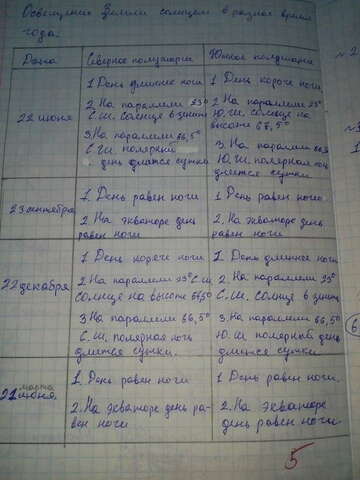 Освещение Земли солнцем в разное время
года.
Дата
Северное полушарие
Южное полушарие
22 июня
1. День длиннее ночи
2. На параллели 23°
С.Ш. солнце в зените
3. На параллели 66,5°
С.Ш. полярный
день длится сутки
1. День короче ночи
2. На параллели 23°
Ю.Ш. солнце на
высоте 66,5°
3. На параллели
Ю.Ш. полярная ночь
длится сутки.
23 сентября
1. День равен ночи
2. На экваторе день
равен ночи
1. День равен ночи
2. На экваторе день
равен ночи.
22 декабря
1. День короче ночи
2. На параллели 23° С.Ш.
солнце на высоте
3. На параллели 66,5°
С.Ш. полярная ночь
длится сутки.
1. День длиннее ночи
2. На параллели 23°
С.Ш. солнце в зените
3. На параллели 66,5°
Ю.Ш. полярный день
длится сутки
марта
21 июня
1. День равен ночи
2. На экваторе день ра-
вен ночи
1. День равен ночи.
2. На экваторе
день равен ночи
5
№ 2
6